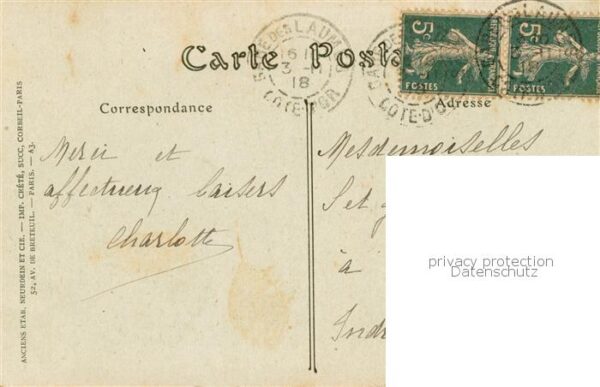 Carte Posta
GARE DES LAUMES
16
3 - 11
18
COTE-D'OR
5c
POSTES
5c
POSTES
COTE-D'OR
Correspondance
Adresse
Merci et
affectueux baisers
Charlotte
Mesdemoiselles
à
Indr
privacy protection
Datenschutz
ANCIENS ETAB. NEURDEIN ET CIE. — IMP. CRÉTÉ, SUCC, CORBEIL-PARIS
52, AV. DE BRETEUIL. — PARIS. — A3.